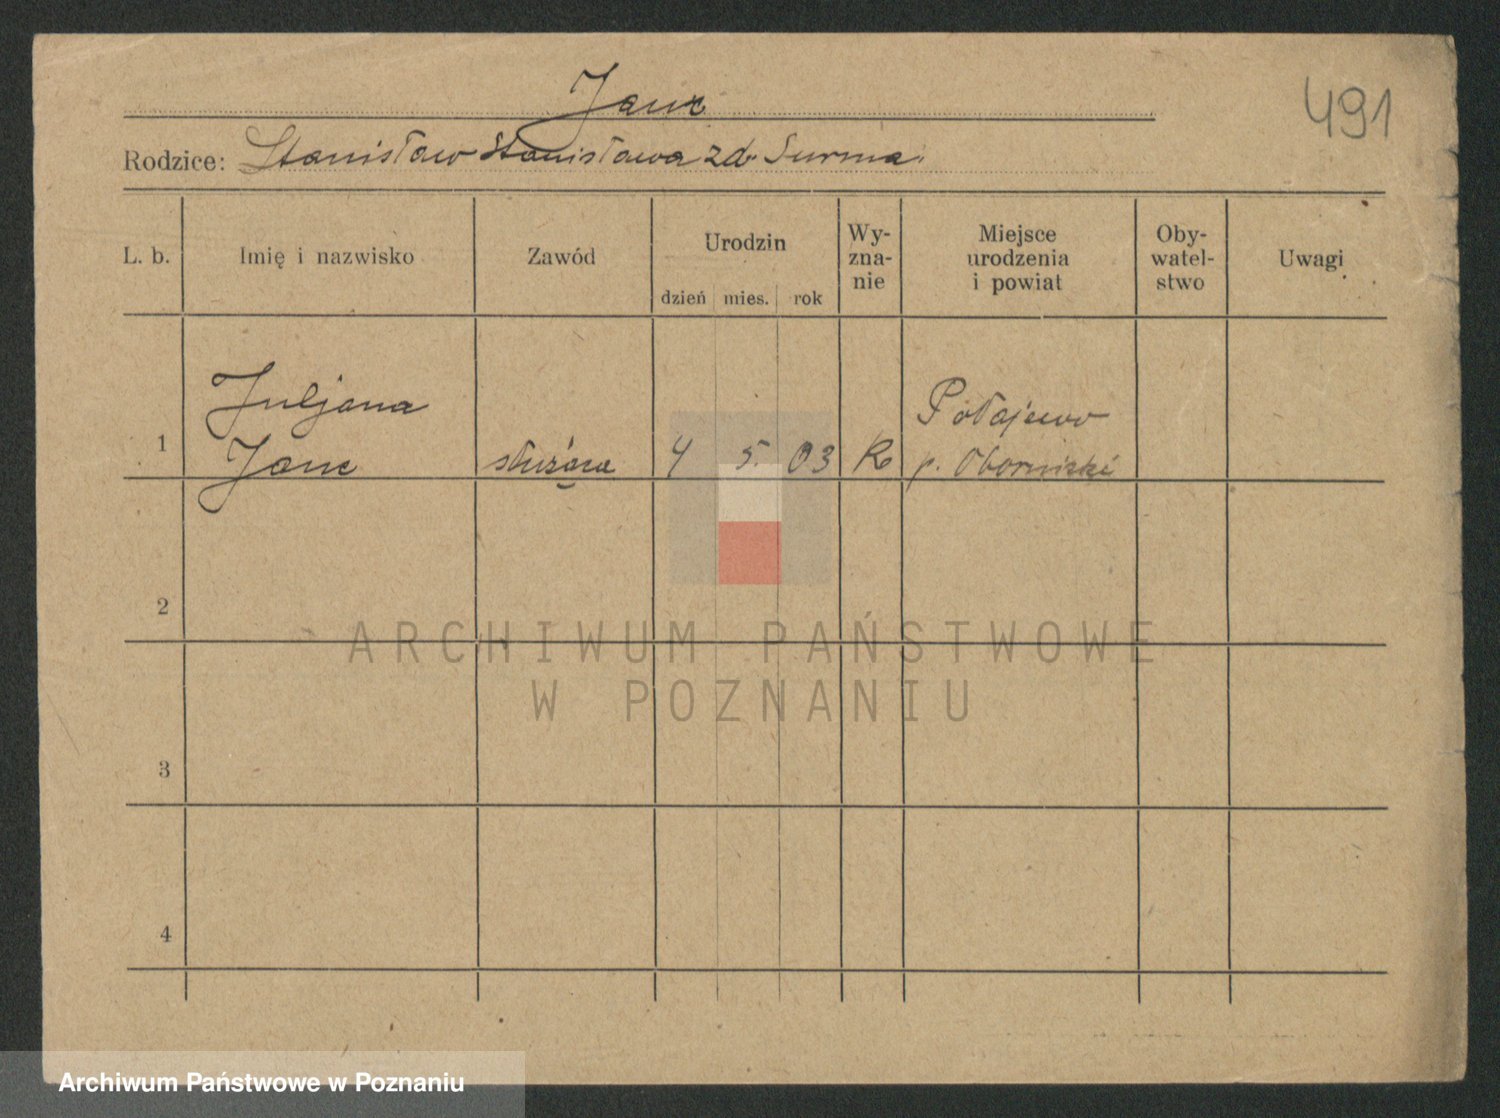 Janc
491
Rodzice: Stanisław Stanisława zd. Surma.
L. b. Imię i nazwisko Zawód Urodzin dzień mies. rok Wy-zna-nie Miejsce urodzenia i powiat Oby-watel-stwo Uwagi
Juljana Połajewo
1 Janc służąca 4 5. 03 Rk p. Obornicki
2
ARCHIWUM PAŃSTWOWE
W POZNANIU
3
4
Archiwum Państwowe w Poznaniu